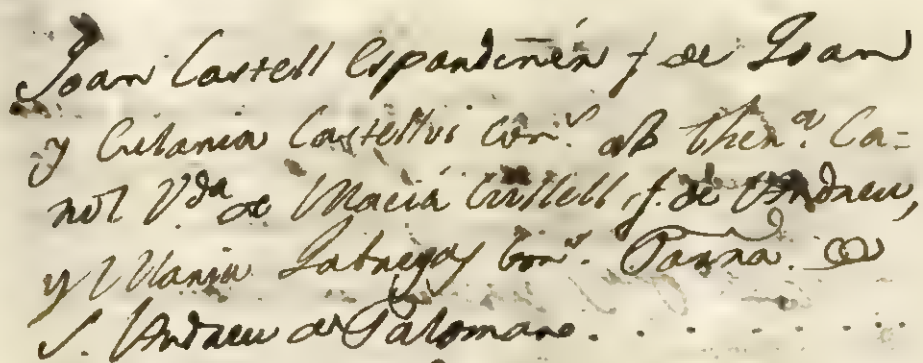 Joan Castell Espardiñer f. de Joan
y Eulania Castellvi Con.s ab Ther.a Ca=
nol V.da de Maciá Cristell, f. de Andreu,
y Maria Con.s Parr.a
S. Andreu de Palomano